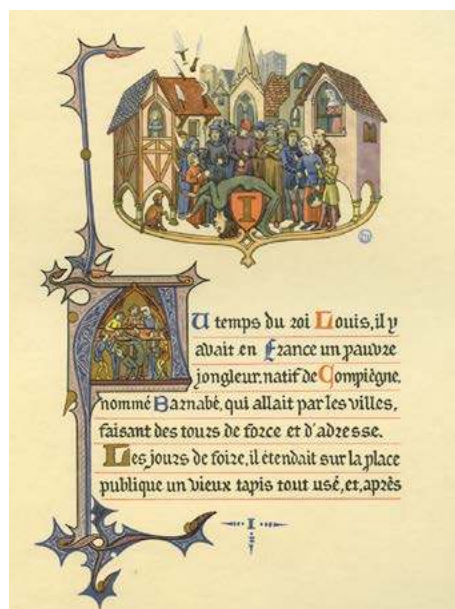 I
AU temps du roi Louis, il y
avait en France un pauvre
jongleur, natif de Compiègne,
nommé Barnabé, qui allait par les villes,
faisant des tours de force et d'adresse.
Les jours de foire, il étendait sur la place
publique un vieux tapis tout usé, et, après
I